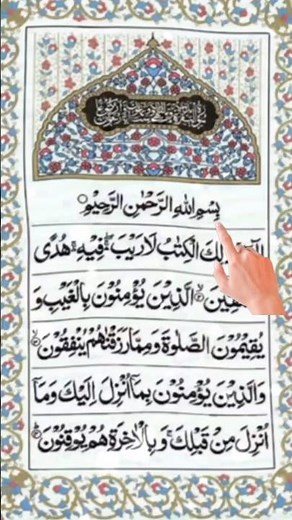 بِسْمِ اللهِ الرَّحْمٰنِ الرَّحِيْمِ
الْكِتٰبُ لَا رَيْبَ ۛ فِيْهِ ۛ هُدًى
الَّذِيْنَ يُؤْمِنُوْنَ بِالْغَيْبِ وَ
يُقِيْمُوْنَ الصَّلٰوةَ وَمِمَّا رَزَقْنٰهُمْ يُنْفِقُوْنَ ۙ
وَالَّذِيْنَ يُؤْمِنُوْنَ بِمَاۤ اُنْزِلَ اِلَيْكَ وَمَاۤ
اُنْزِلَ مِنْ قَبْلِكَ ۚ وَبِالْاٰخِرَةِ هُمْ يُوْقِنُوْنَ ؕ